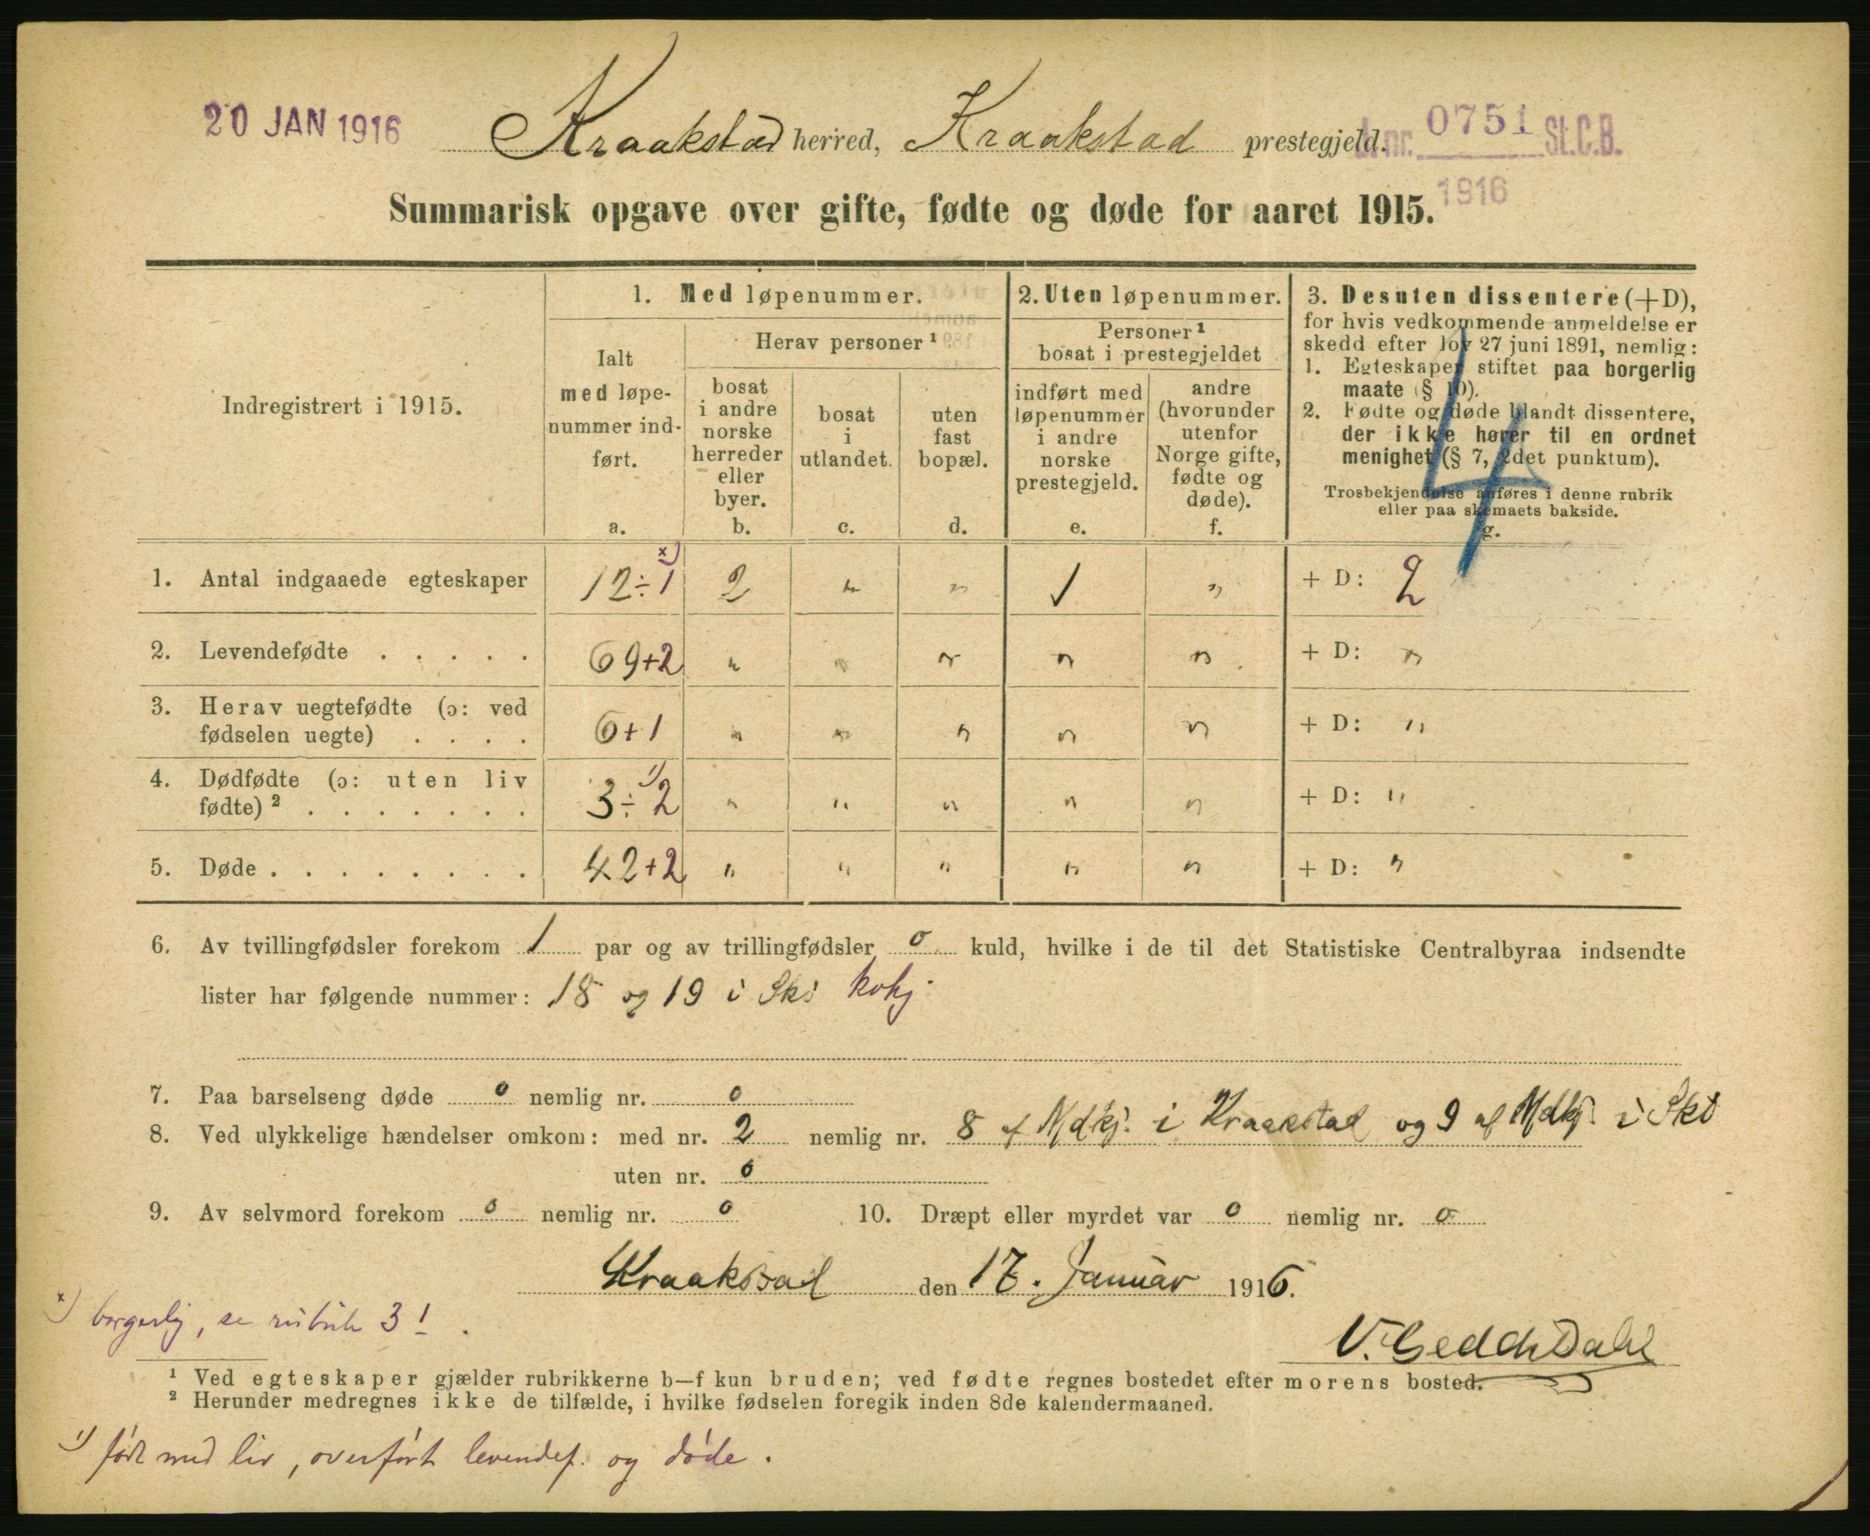 20 JAN 1916
Kraakstad herred, Kraakstad prestegjeld.
J.nr. 0751 St.C.B.
1916
Summarisk opgave over gifte, fødte og døde for aaret 1915.
Indregistrert i 1915.
1. Med løpenummer.
Ialt
med løpe-
nummer ind-
ført.
a.
Herav personer ¹
bosat
i andre
norske
herreder
eller
byer.
b.
bosat
i
utlandet.
c.
uten
fast
bopæl.
d.
2. Uten løpenummer.
Personer ¹
bosat i prestegjeldet
indført med
løpenummer
i andre
norske
prestegjeld.
e.
andre
(hvorunder
utenfor
Norge gifte,
fødte og
døde).
f.
3. Desuten dissentere (+D),
for hvis vedkommende anmeldelse er
skedd efter lov 27 juni 1891, nemlig:
1. Egteskaper stiftet paa borgerlig
maate (§ 10).
2. Fødte og døde blandt dissentere,
der ikke hører til en ordnet
menighet (§ 7, 2det punktum).
Trosbekjendelse anføres i denne rubrik
eller paa skemaets bakside.
g.
4
1. Antal indgaaede egteskaper 12÷1 x) 2 " " 1 " + D: 2
2. Levendefødte . . . . . 69+2 " " " " " + D: "
3. Herav uegtefødte (ɔ: ved
fødselen uegte) . . . . 6+1 " " " " " + D: "
4. Dødfødte (ɔ: uten liv
fødte) ² . . . . . . . 3÷2 ¹) " " " " " + D: "
5. Døde . . . . . . . . 42+2 " " " " " + D: "
6. Av tvillingfødsler forekom 1 par og av trillingfødsler 0 kuld, hvilke i de til det Statistiske Centralbyraa indsendte
lister har følgende nummer: 18 og 19 i Ski kokj.
7. Paa barselseng døde 0 nemlig nr. 0
8. Ved ulykkelige hændelser omkom: med nr. 2 nemlig nr. 8 af Mdkj. i Kraakstad og 9 af Mdkj. i Ski
uten nr. 0
9. Av selvmord forekom 0 nemlig nr. 0 10. Dræpt eller myrdet var 0 nemlig nr. 0
Kraakstad den 17. Januar 1916.
x) borgerlig, se rubrik 3!
¹ Ved egteskaper gjælder rubrikkerne b—f kun bruden; ved fødte regnes bostedet efter morens bosted.
² Herunder medregnes ikke de tilfælde, i hvilke fødselen foregik inden 8de kalendermaaned.
¹) født med liv, overført levendef. og døde.